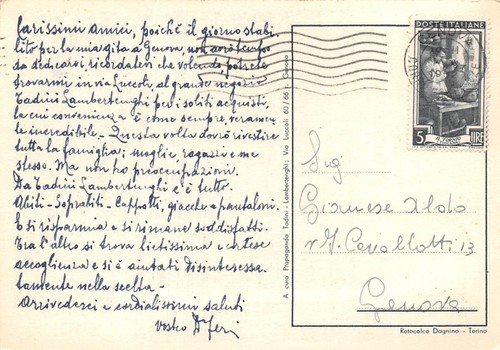 Carissimi amici, poiché il giorno stabi_
lito per la mia gita a Genova, non avrò tempo
da dedicarvi ricordatevi che volendo, potrete
trovarmi in via Luccoli al grande negozio
Tadini Lambertenghi per i soliti acquisti,
la cui convenienza è come sempre, veramen_
te incredibile - Questa volta dovrò rivestire
tutta la famiglia; moglie, ragazzi e me
stesso. Ma non ho preoccupazioni.
Da Tadini Lambertenghi c'è tutto.
Abiti - Soprabiti - Cappotti, giacche e pantaloni.
E si risparmia e si rimane soddisfatti.
Tra l'altro si trova lietissima e cortese
accoglienza e si è aiutati disinteressa_
tamente nella scelta -
Arrivederci e cordialissimi saluti
Vostro
A cura Propaganda Tadini - Lambertenghi: Via Luccoli 60 / 66 - Genova
POSTE ITALIANE
IL TORNIO
5 LIRE
Sig
Gianese Aldo
v. F. Cavallotti 13
Genova
Rotocalco Dagnino - Torino